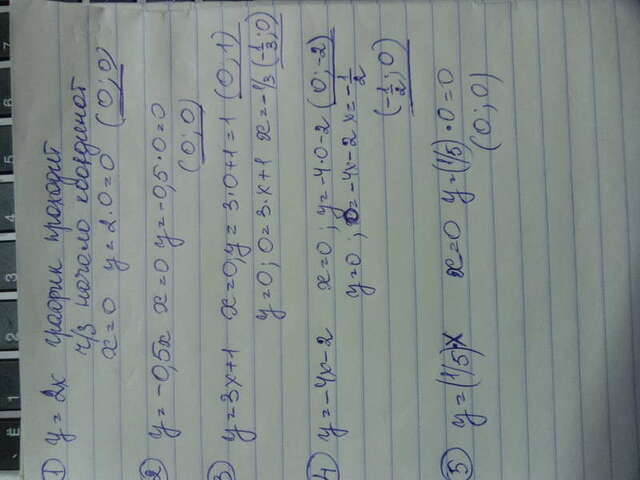 Ё 1 2 3 4 5 6 7
① y = 2x график проходит
ч/з начало координат
x = 0 y = 2·0 = 0 (0;0)
② y = -0,5x x = 0 y = -0,5·0 = 0
(0;0)
③ y = 3x+1 x = 0; y = 3·0+1 = 1 (0;1)
y = 0; 0 = 3·x+1 x = -1/3 (-1/3;0)
④ y = -4x-2 x = 0; y = -4·0-2 (0;-2)
y = 0; 0 = -4x-2 x = -1/2
(-1/2;0)
⑤ y = (1/5)·x x = 0 y = (1/5)·0 = 0
(0;0)